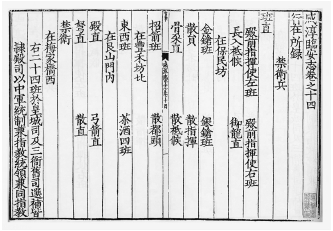 咸淳臨安志卷之十四
行在所錄
禁衛兵
班直
殿前指揮使左班　殿前指揮使右班
長入祗候　御龍直
在保民坊
金鎗班　銀鎗班
散員　散指揮
骨朶直　散祗候
招箭班　散都頭
在豐禾坊北
東西班　茶酒四班
在艮山門內
殿直　弓箭直
弩直　散直
在梅家橋西
右二十四班於皇城司及三衙舊司選補皆
隷殿司以中軍統制兼指教統領兼同指教
禁衛